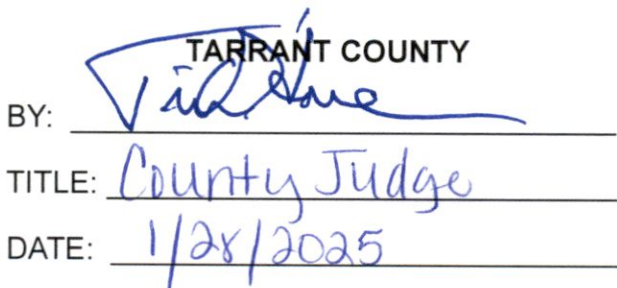 TARRANT COUNTY
BY:
TITLE: County Judge
DATE: 1/28/2025